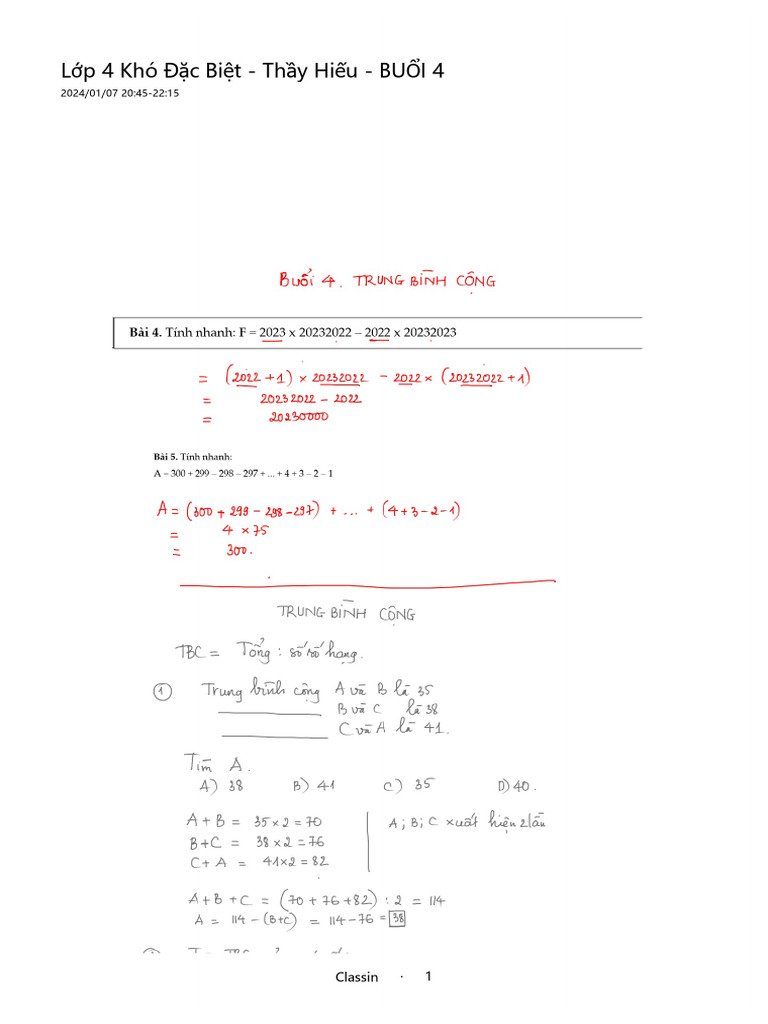 Lớp 4 Khó Đặc Biệt - Thầy Hiếu - BUỔI 4
2024/01/07 20:45-22:15
Buổi 4. TRUNG BÌNH CỘNG
Bài 4. Tính nhanh: F = 2023 x 20232022 – 2022 x 20232023
= (2022 + 1) x 20232022 - 2022 x (20232022 + 1)
= 20232022 - 2022
= 20230000
Bài 5. Tính nhanh:
A = 300 + 299 – 298 – 297 + ... + 4 + 3 – 2 – 1
A = (300 + 299 - 298 - 297) + ... + (4 + 3 - 2 - 1)
= 4 x 75
= 300.
TRUNG BÌNH CỘNG
TBC = Tổng : số số hạng.
① Trung bình cộng A và B là 35
B và C là 38
C và A là 41.
Tìm A.
A) 38 B) 41 C) 35 D) 40.
A + B = 35 x 2 = 70 A ; B ; C xuất hiện 2 lần
B + C = 38 x 2 = 76
C + A = 41 x 2 = 82
A + B + C = (70 + 76 + 82) : 2 = 114
A = 114 - (B+C) = 114 - 76 = 38
Classin · 1